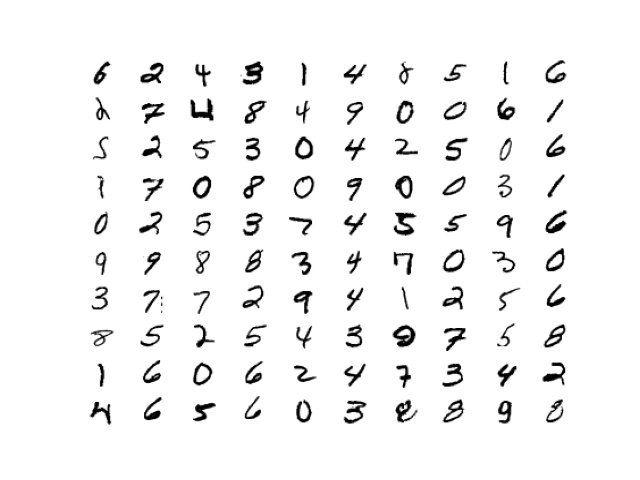 6 2 4 3 1 4 8 5 1 6
2 7 4 8 4 9 0 0 6 1
5 2 5 3 0 4 2 5 0 6
1 7 0 8 0 9 0 0 3 1
0 2 5 3 7 4 5 5 9 6
9 9 8 8 3 4 7 0 3 0
3 7 7 2 9 4 1 2 5 6
8 5 2 5 4 3 9 7 5 8
1 6 0 6 2 4 7 3 4 2
4 6 5 6 0 3 8 8 9 8